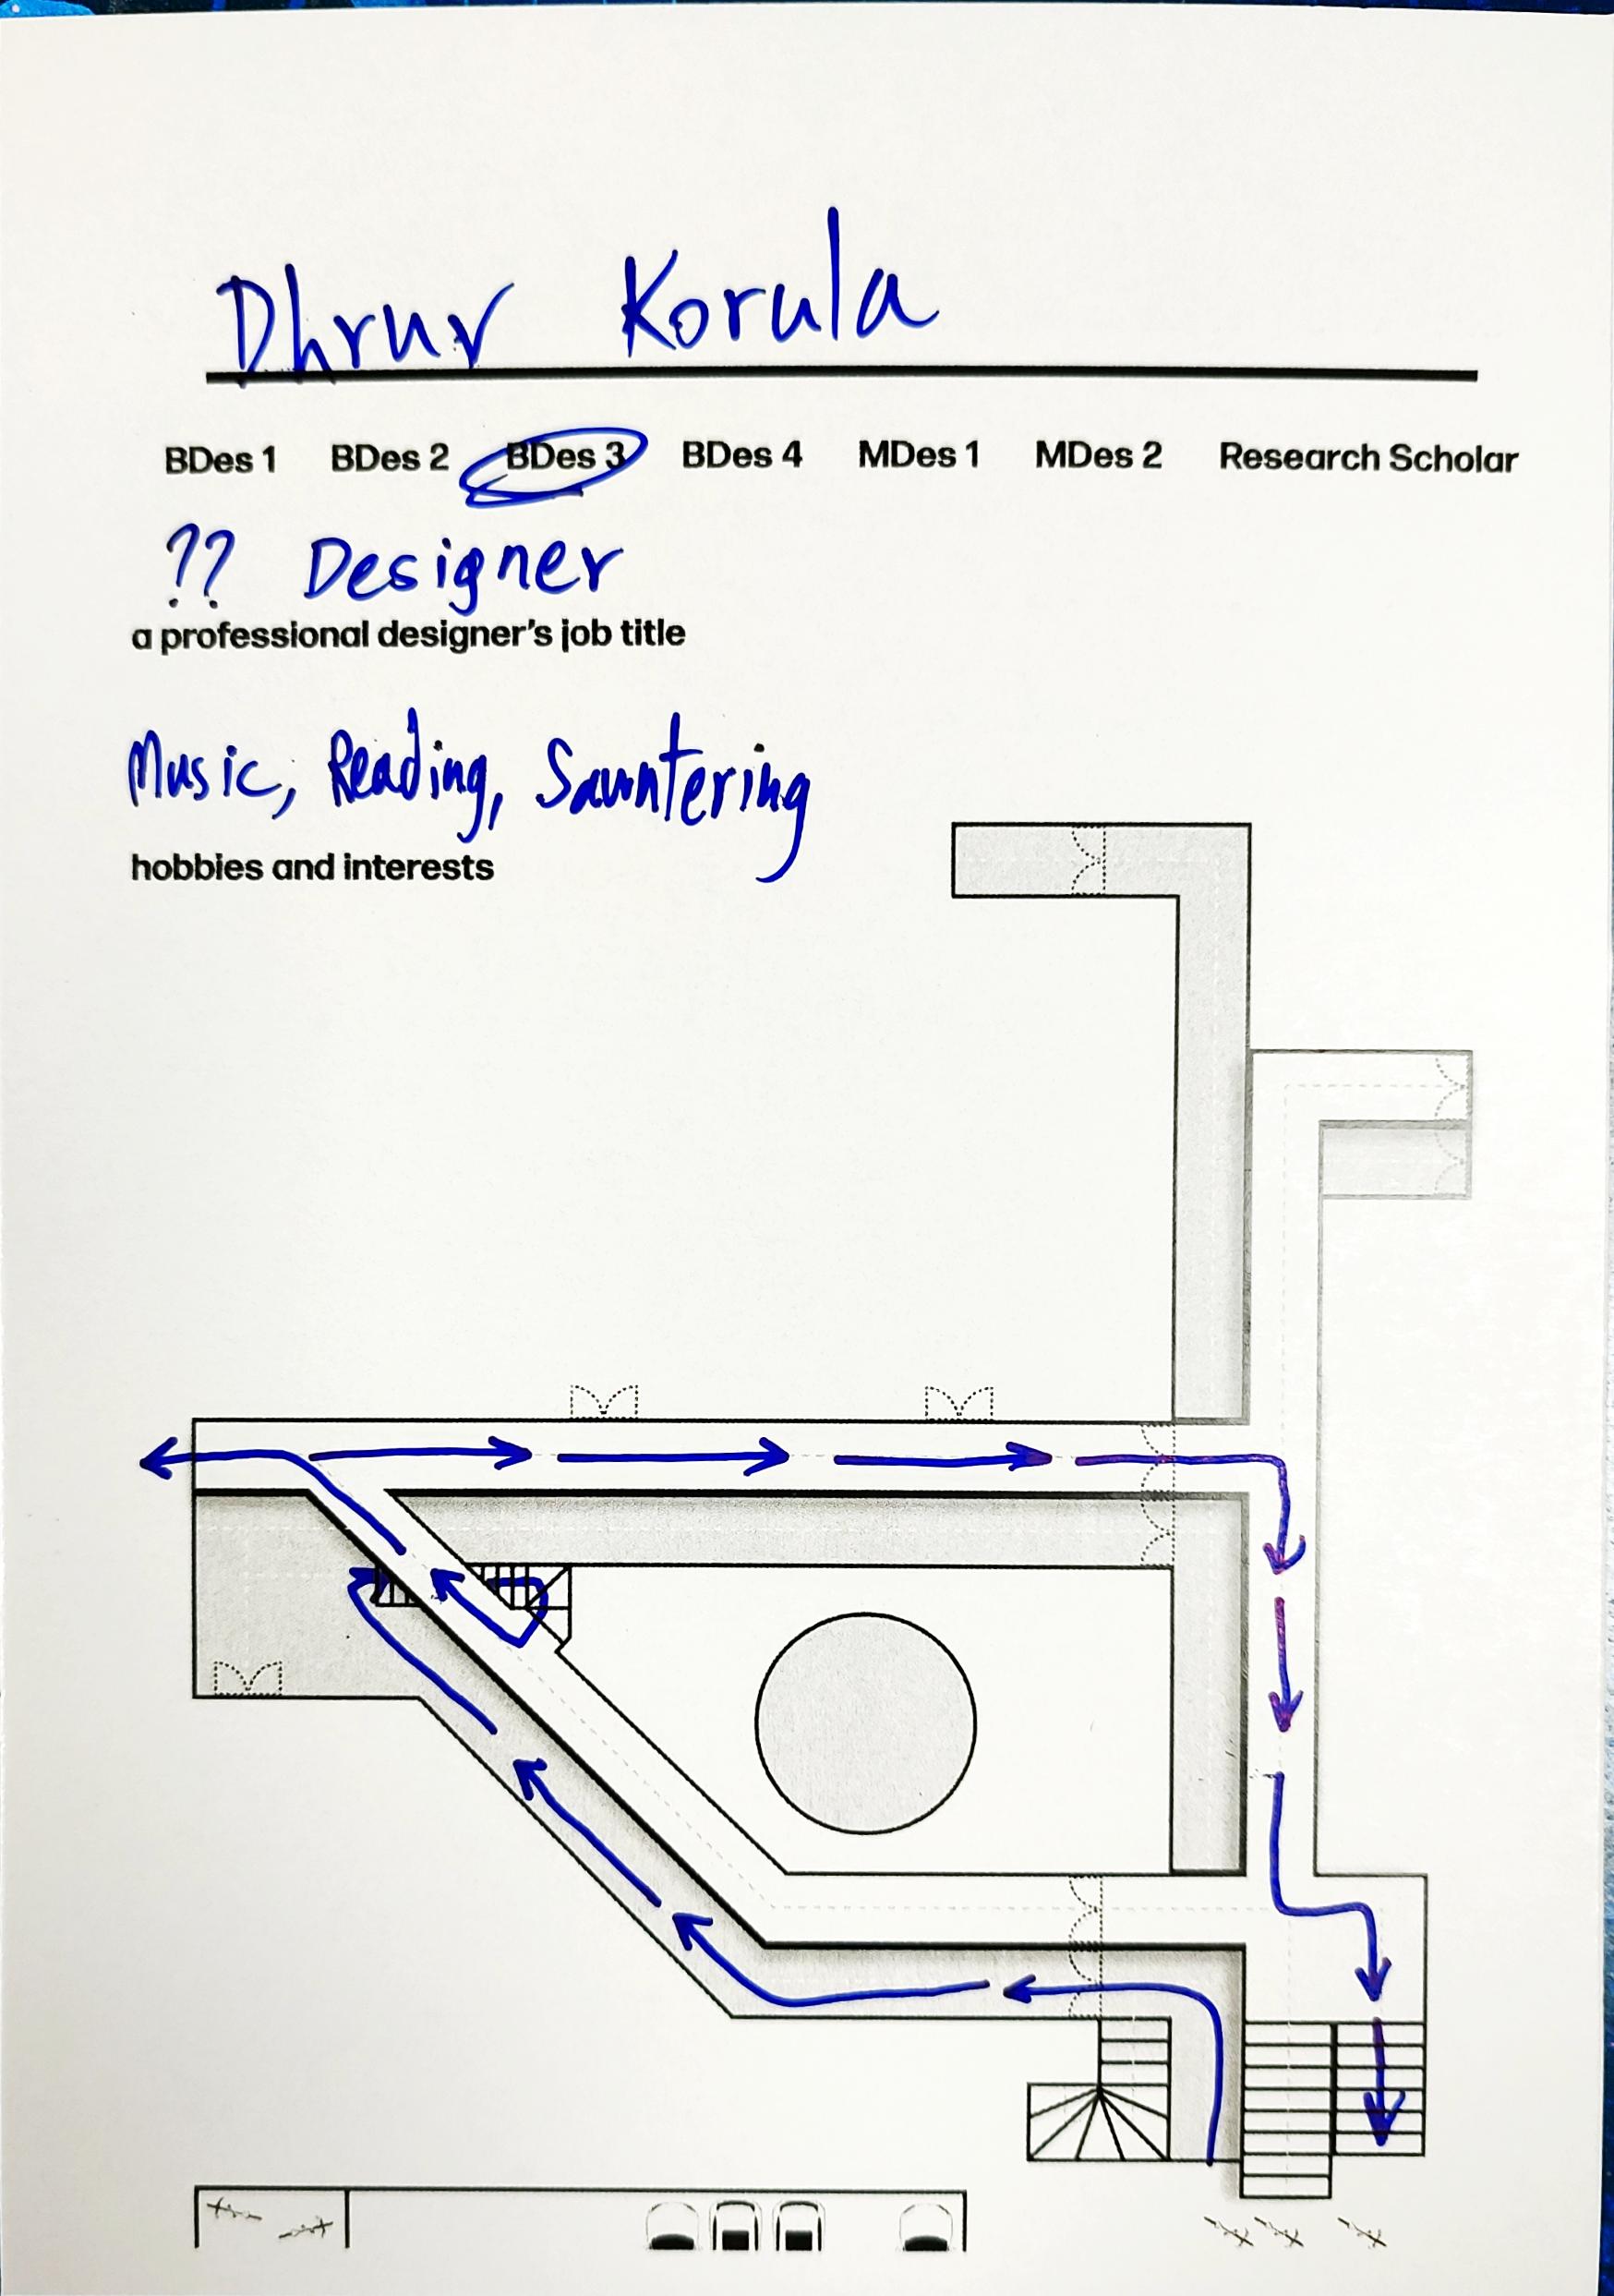 Dhruv Korula
BDes 1 BDes 2 BDes 3 BDes 4 MDes 1 MDes 2 Research Scholar
?? Designer
a professional designer's job title
Music, Reading, Sauntering
hobbies and interests